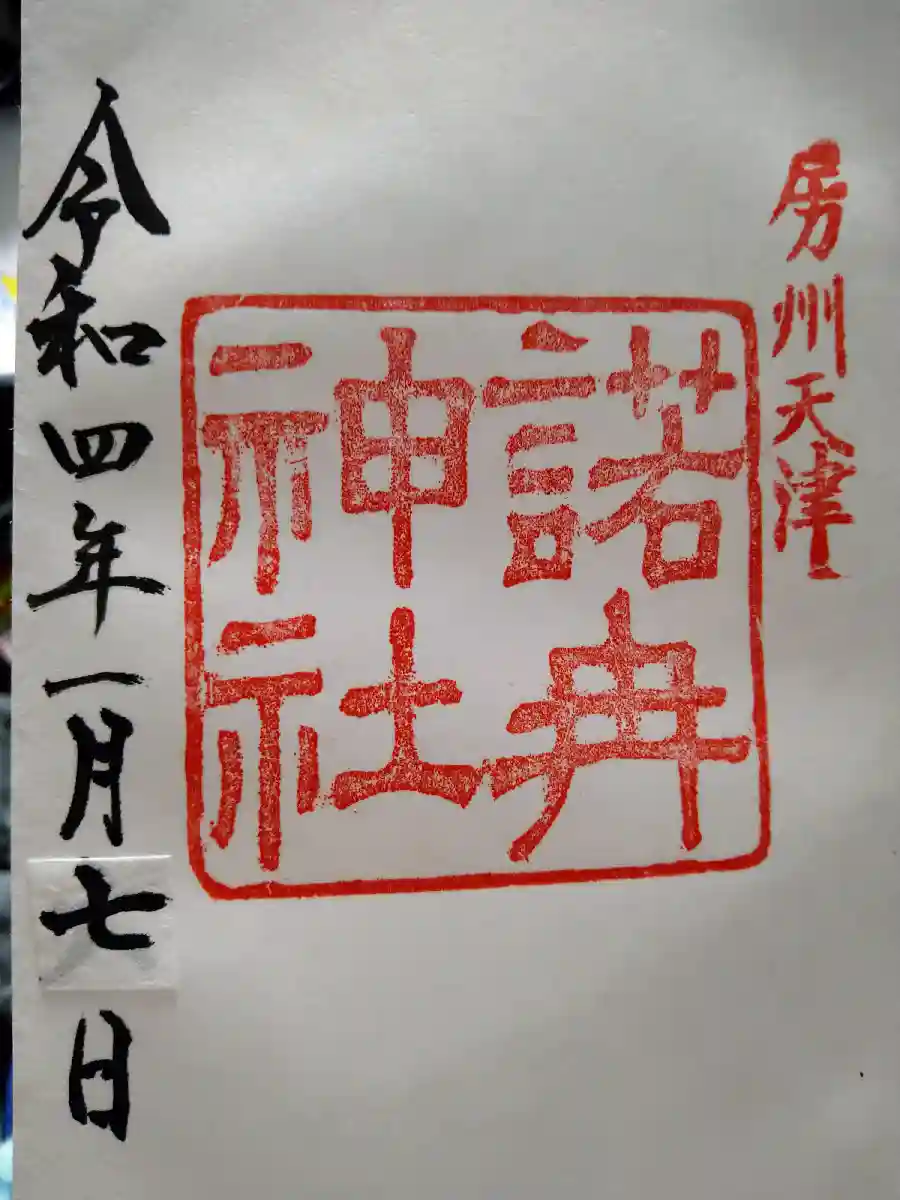 房州天津
諾冉
神社
令和四年一月七日